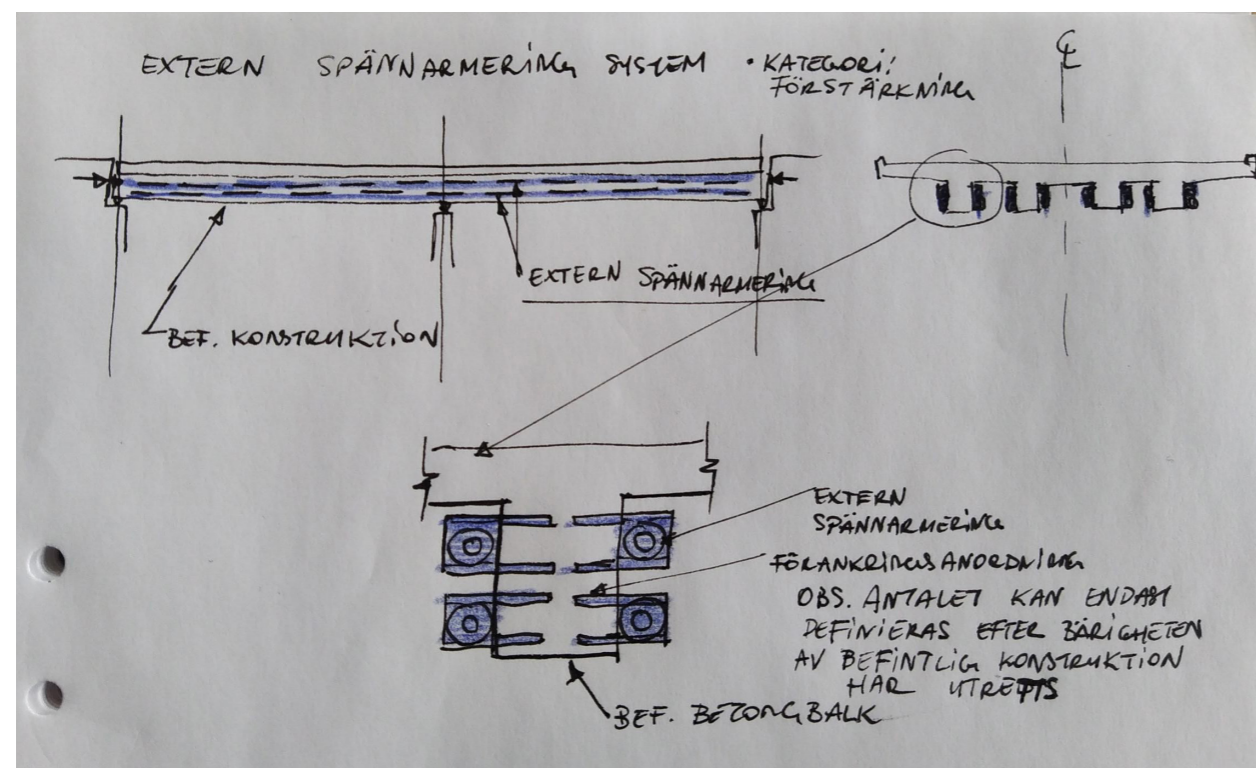 EXTERN SPÄNNARMERING SYSTEM • KATEGORI:
FÖRSTÄRKNING
CL
EXTERN SPÄNNARMERING
BEF. KONSTRUKTION
EXTERN
SPÄNNARMERING
FÖRANKRINGSANORDNING
OBS. ANTALET KAN ENDAST
DEFINIERAS EFTER BÄRIGHETEN
AV BEFINTLIG KONSTRUKTION
HAR UTRETTS
BEF. BETONGBALK